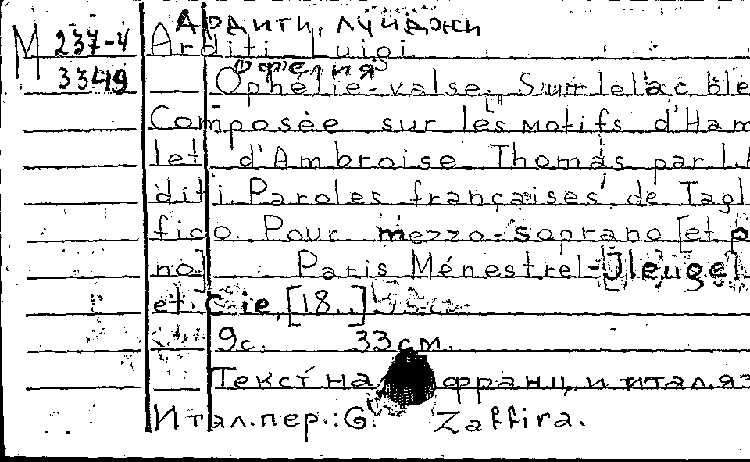 Ардити, Луиджи
М 237-4 Arditi Luigi
3349 Офелия
Ophélie-valse. Sur le lac ble
Composée sur les motifs d'Ham
let d'Ambroise Thomas par L.A
diti. Paroles françaises de Tagl
fico. Pour mezzo-soprano [et p
no] Paris Ménestrel-
et Cie, [18..]
9с. 33см.
Текст на франц. и итал. яз
Итал. пер.: G. Zaffira.